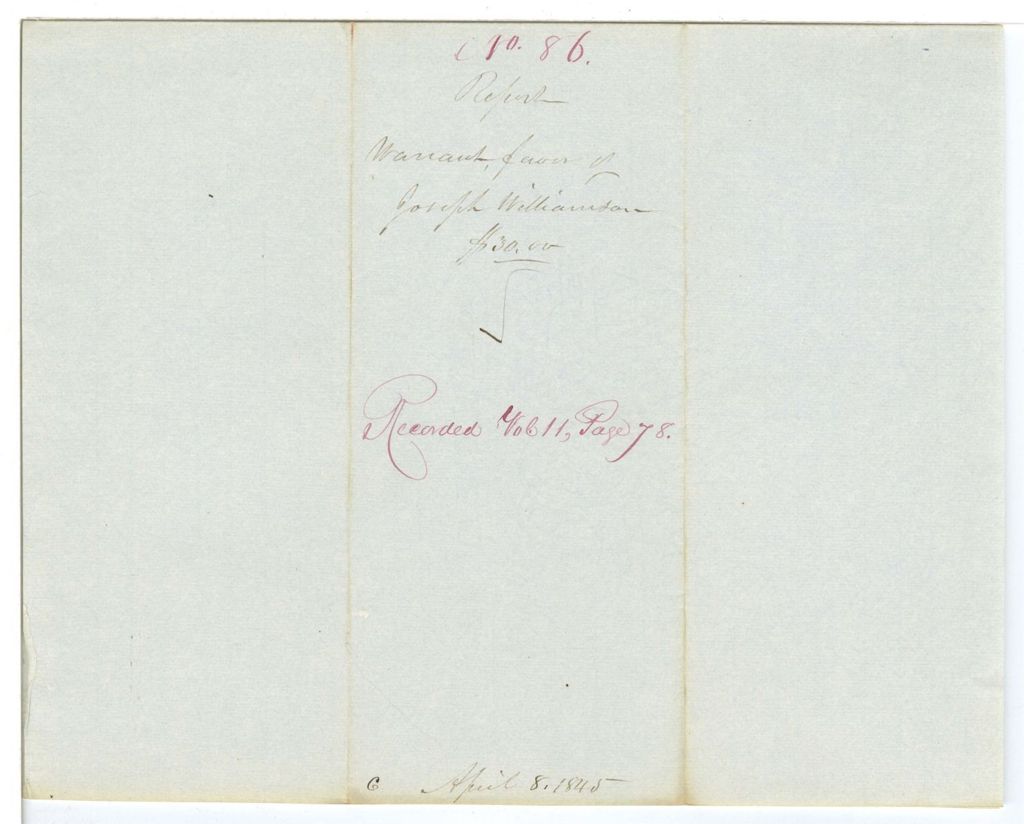 No. 86.
Report
Warrant, favor of
Joseph Williamson
$30.00
Recorded Vol 11, Page 78.
C April 8. 1845